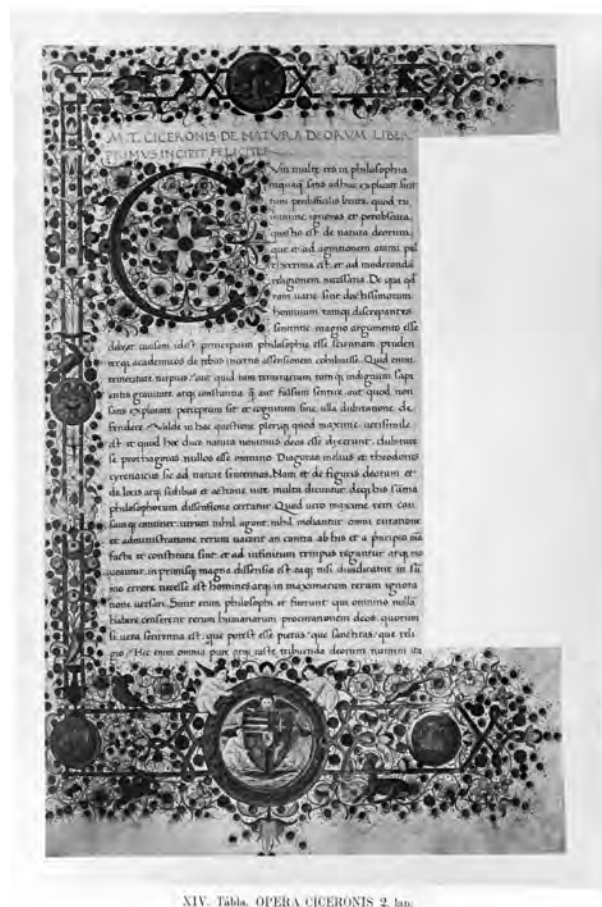 M. T. CICERONIS DE NATURA DEORVM LIBER
PRIMVS INCIPIT FELICITER
CVm multe res in philosophia
nequaq satis adhuc explicate sint
tum perdifficilis brute quod tu
minime ignoras et perobscura
questio est de natura deorum
que et ad agnitionem animi pul
cherrima est et ad moderandā
religionem necessaria. De qua
tam uarie sint doctissimorum
hominum tamq discrepantes
sententie magno argumento esse
debeat causam idest principium philosophie esse scientiam pruden
terq academicos de rebus incertis assensionem cohibuisse. Quid enim
temeritate turpius? aut quid tam temerarium tamq indignum sapi
entis grauitate atq constantia q̄ aut falsum sentire aut quod non
satis explorate perceptum sit et cognitum sine ulla dubitatione de
fendere Valde in hac questione pleriq quod maxime uerisimile
est et quod hoc duce natura uenimus deos esse dixerunt dubitare
se prothagoras nullos esse omnino Diagoras melius et theodorus
cyrenaicus sic ad nature sententias. Nam et de figuris deorum et
de locis atq sedibus et actione uite multa dicuntur deq his sūma
philosophorum dissensione certatur Quod uero maxime rem cau
samq continet utrum nihil agant nihil moliantur omni curatione
et administratione rerum uacent an contra ab his et a principio oīa
facta et constituta sint et ad infinitum tempus regantur atq mo
ueantur in primisq magna dissensio est eaq nisi diiudicatur in sū
mo errore necesse est homines atq in maximarum rerum ignora
tione uersari. Sunt enim philosophi et fuerunt qui omnino nullā
habere censerent rerum humanarum procurationem deos quorum
si uera sententia est que potest esse pietas que sanctitas que reli
gio? Hec enim omnia pure atq caste tribuenda deorum numini ita
XIV. Tábla. OPERA CICERONIS 2. lap.